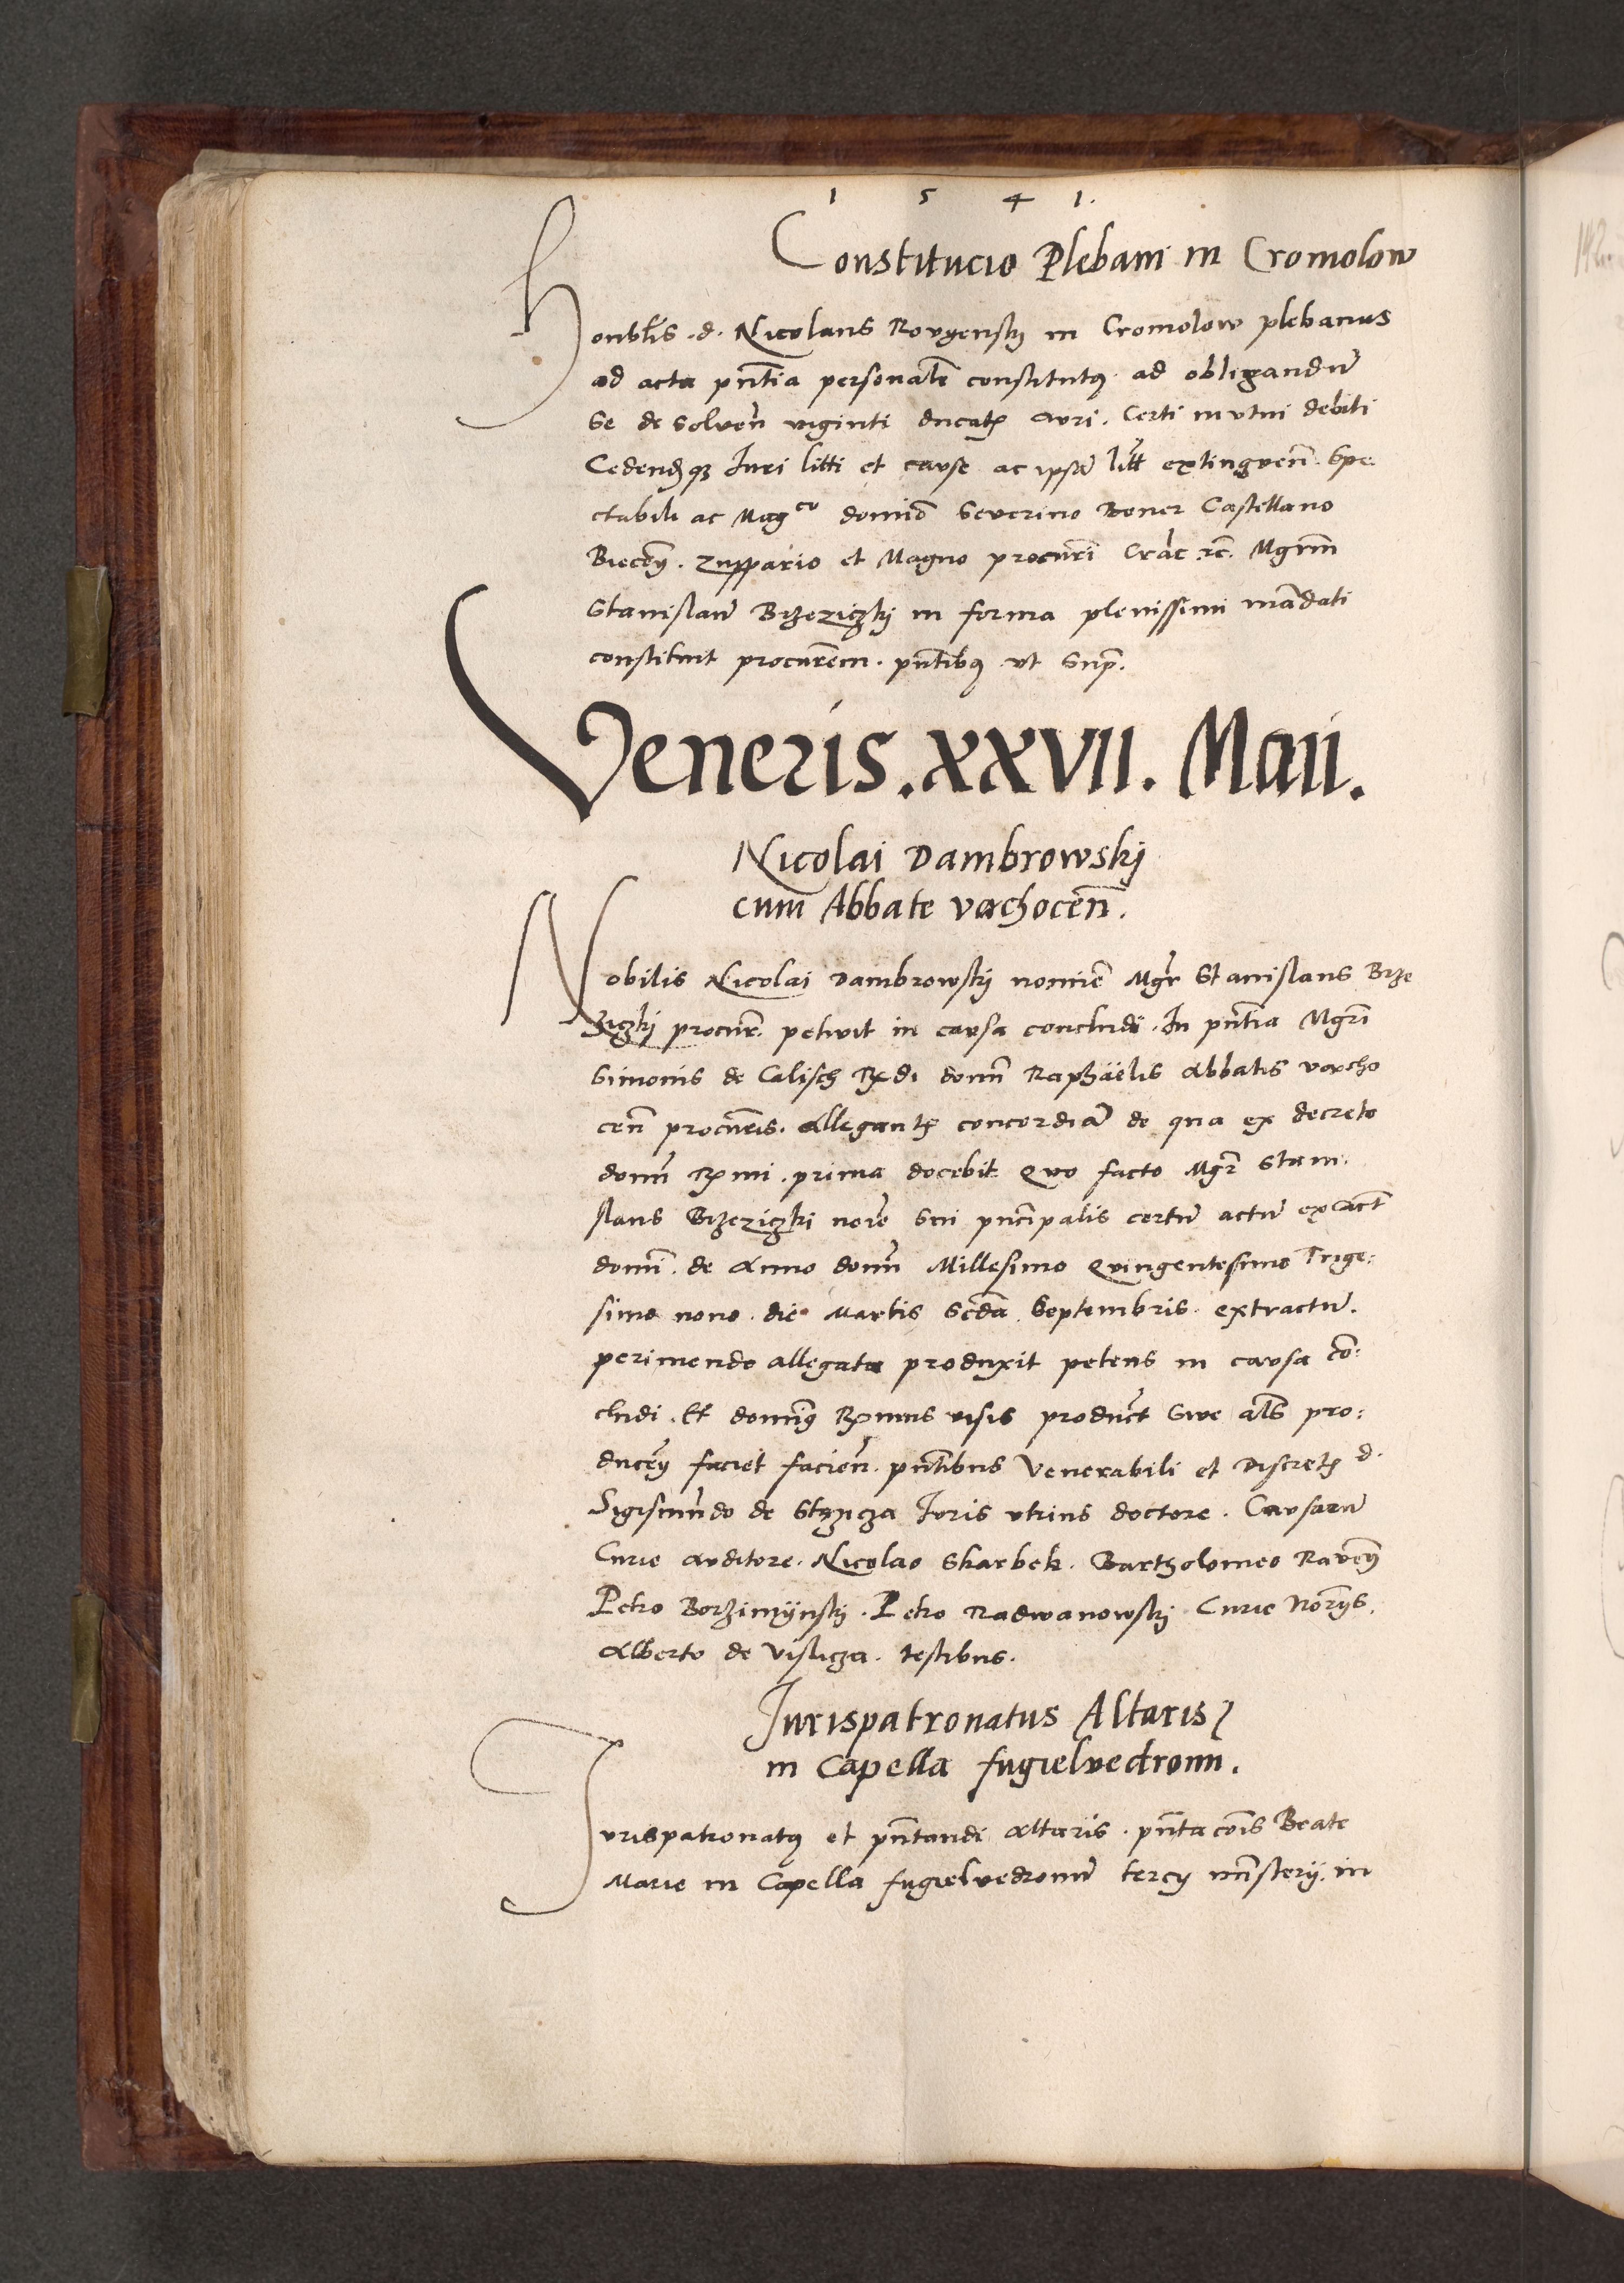 1 5 4 1.
Constitucio Plebani in Cromolow
Honblis .d. Nicolaus Rovgenskij in Cromolow plebanus
ad acta pñtia personalr constitutꝯ ad obligandũ
se de solueñ viginti ducatꝭ auri. Certi mutui debiti
Cedendꝙ Iuri liti et cause ac ipsã litẽ extingueñ. Spe
ctabili ac Magco domiõ Severino Boner Castellano
Zuppario et Magno procurĩ Crac rc. Mgrm̃
Stanislaũ Brzeziczkij in forma plenissimi mãdati
constituit procurẽm. pñtibꝯ vt supr.
Veneris .XXVII. Maii.
Nicolai Dambrowskj
cum Abbate vachoceñ.
Nobilis Nicolai Dambrowskij nomiẽ Mgr Stanislaus Brze
ziczkij procur̃. petivit in causa concludi. In pñtia Mgrĩ
Simonis de Calisch Rdi domĩ Raphäelis Abbatis vacho
ceñ procuris. Allegantꝭ concordiã de qua ex decreto
domĩ Rmi. prima docebit Quo facto Mgr̃ Stani
slaus Brzeziczkj noĩe sui pñcipalis certũ actũ ex act
domĩ. de Anno domĩ Millesimo Quingentesimo Trige:
simo nono. die Martis scda Septembris. extractũ.
perimendo allegata produxit petens in causa cõ:
cludi. Et dominꝯ Rmus visis product sive als pro:
ducen̄ faciet facieñ. pñtibus Venerabili et Discretꝭ d.
Sigismũdo de Stẓcza Iuris vtrius doctore. Causarũ
Curie Auditore. Nicolao Skarbek. Bartholomeo
Petro Borzimÿnskj. Petro Radwanowskj Curie Norijs.
Alberto de Vislicza. testibus.
Iurispatronatus Altaris
in Capella fugielvedronn.
Iurispatronatꝯ et pñtandi altaris. pñtacõis Beate
Marie in Capella fugielvedronũ tercij mĩsterij. in